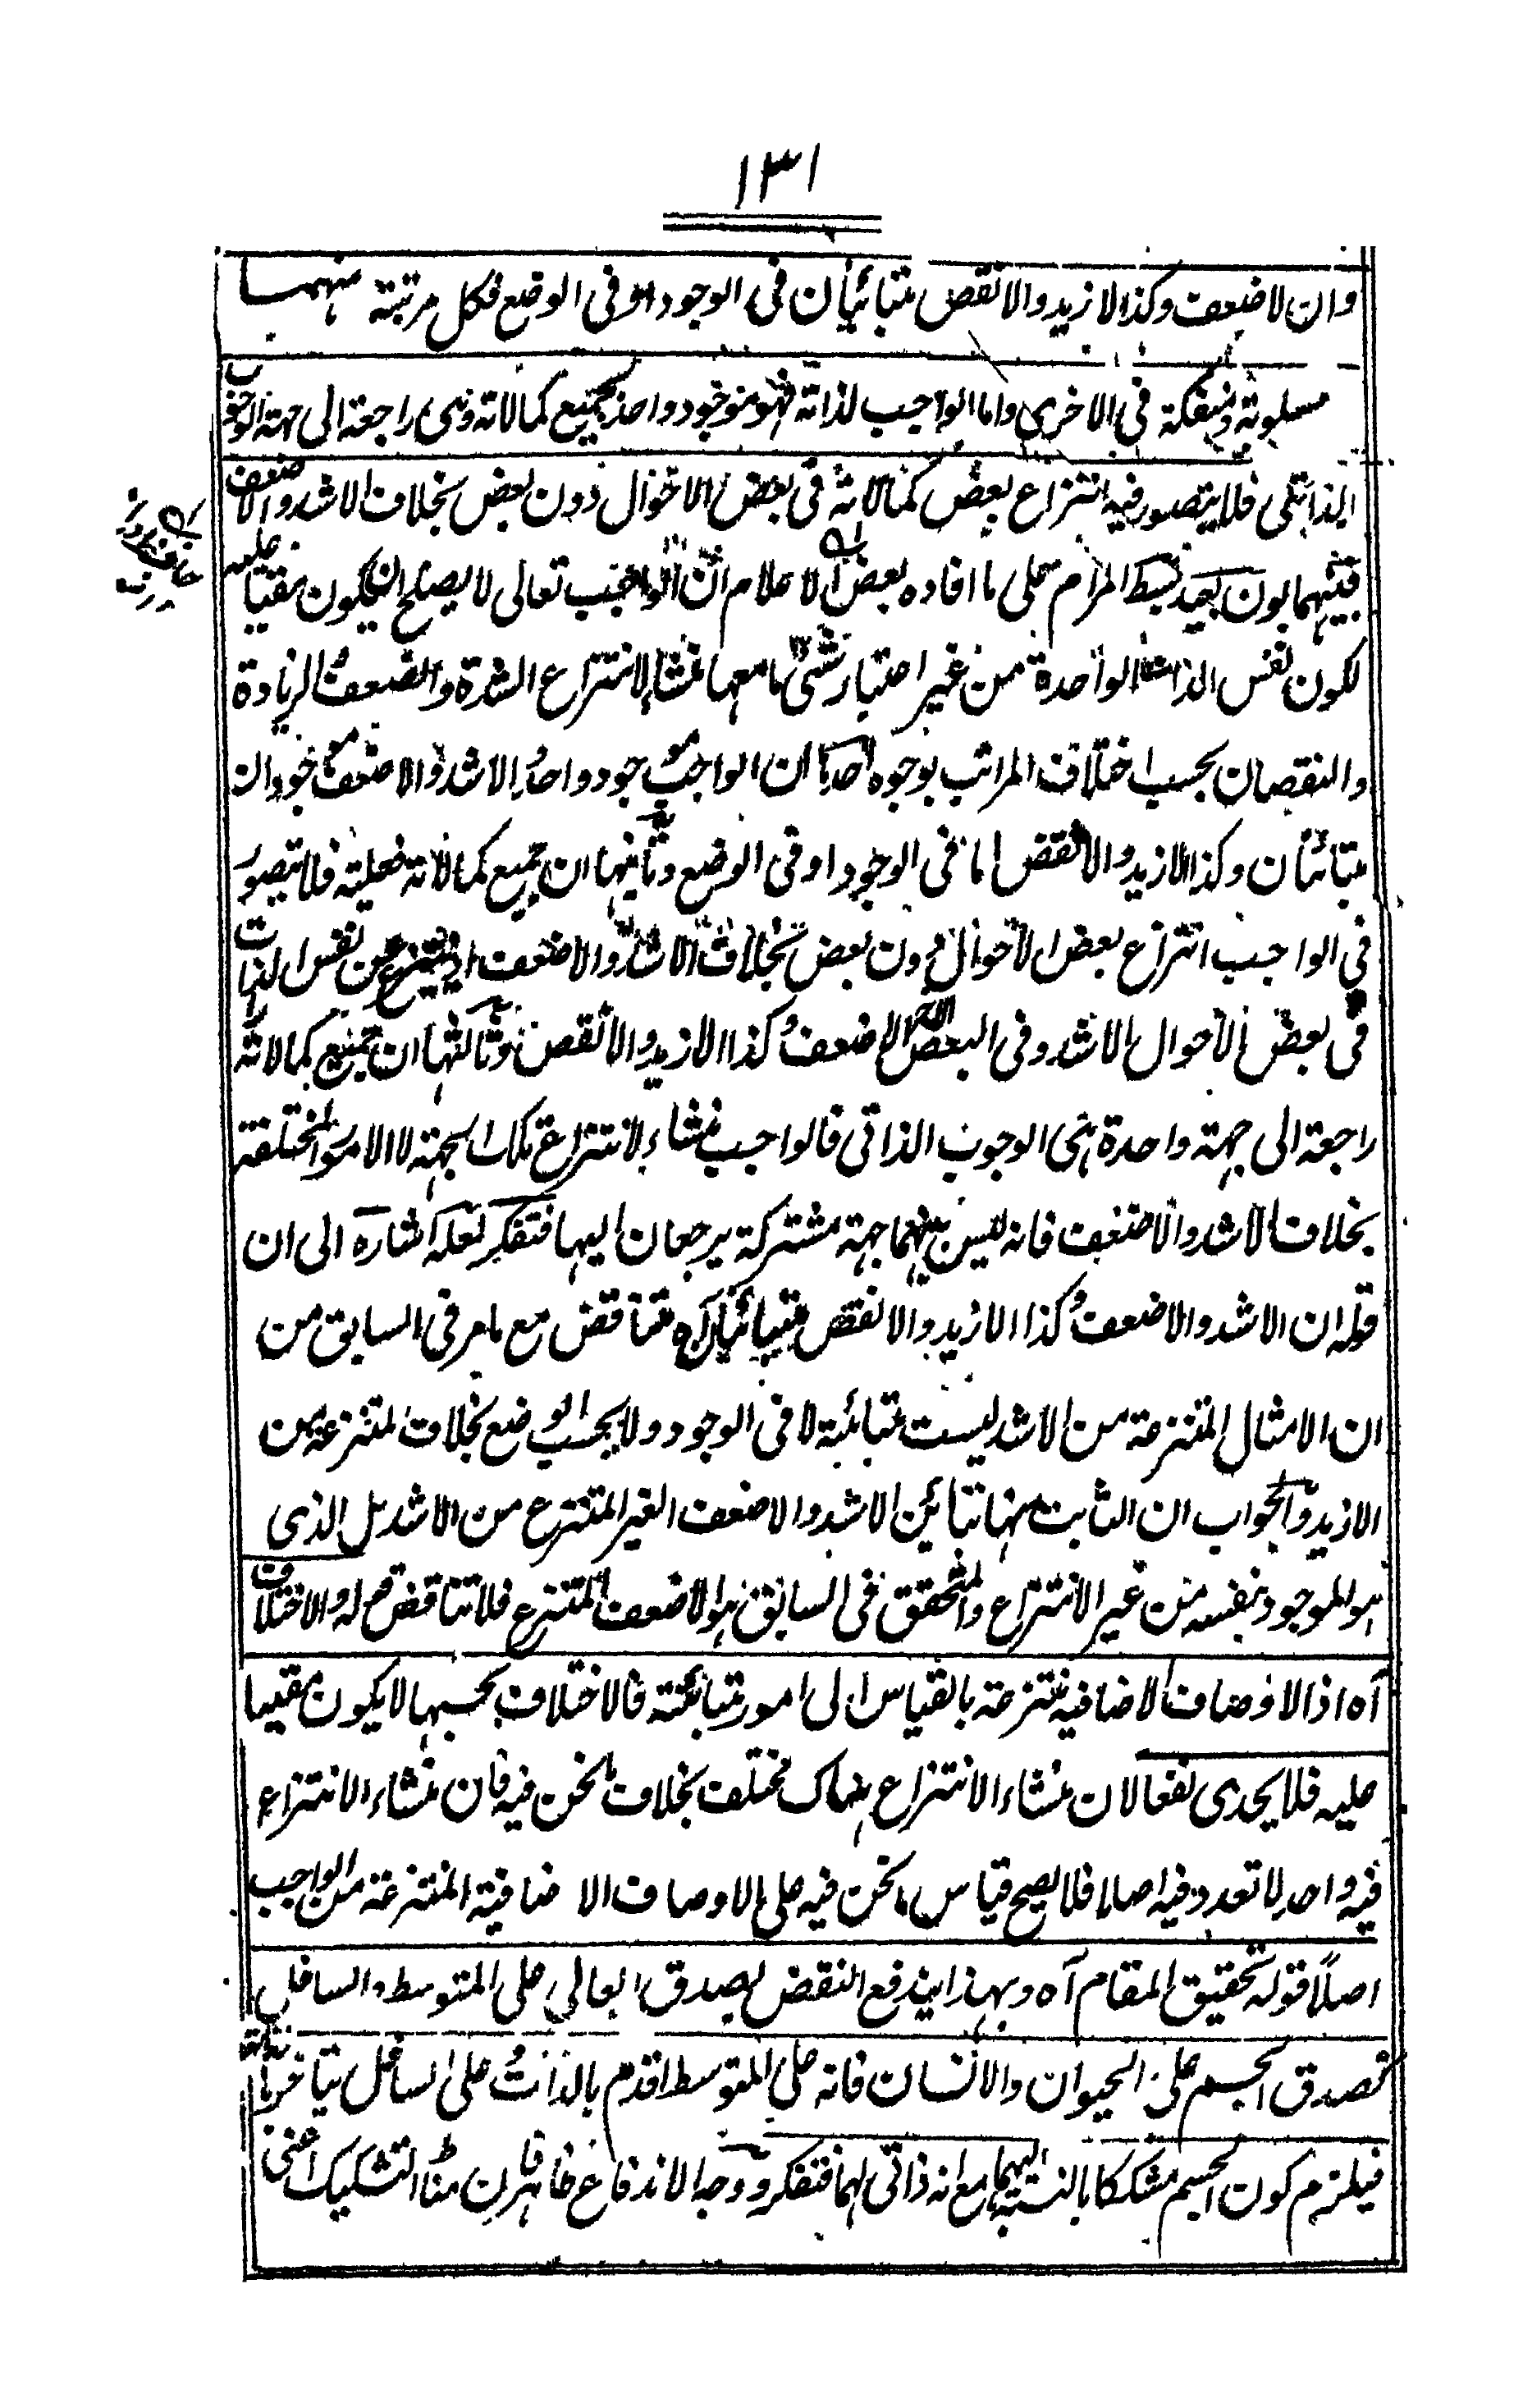 ١٣١
وان لاضعف وكذا الازيد والانقص متبائنان فى الوجود او فى الوضع فكل مرتبة منهما
مسلوبة ومنفكة فى الاخرى واما الواجب لذاته فهو موجود واحد بجميع كمالاته وهى راجعة الى جهة الوجوب
الذاتى فلا يتصور فيه انتزاع بعض كمالاته فى بعض الاحوال دون بعض بخلاف الاشد والاضعف
فبينهما بون بعيد بسط المرام على ما افاده بعض الاعلام ان الواجب تعالى لا يصلح ان يكون مقيسا عليه
لكون نفس الذات الواحدة من غير اعتبار شىء ما معها منشاء لانتزاع الشدة والضعف والزيادة
والنقصان بحسب اختلاف المراتب بوجوه احدها ان الواجب موجود واحد والاشد والاضعف موجودان
متبائنان وكذا الازيد والانقص اما فى الوجود او فى الوضع وثانيها ان جميع كمالاته فعلية فلا يتصور
فى الواجب انتزاع بعض الاحوال دون بعض بخلاف الاشد والاضعف اذ ينتزع عن نفس الذات
فى بعض الاحوال الاشد وفى البعض الاضعف وكذا الازيد والانقص وثالثها ان جميع كمالاته
راجعة الى جهة واحدة هى الوجوب الذاتى فالواجب منشاء لانتزاع تلك الجهة لا الامور المختلفة
بخلاف الاشد والاضعف فانه ليس بينهما جهة مشتركة يرجعان اليها فتفكر لعله اشارة الى ان
قوله ان الاشد والاضعف وكذا الازيد والانقص متبائنان آه متناقض مع ما مر فى السابق من
ان الامثال المتنزعة من الاشد ليست متبائنة لا فى الوجود ولا بحسب الوضع بخلاف المتنزعة من
الازيد والجواب ان الثابت ههنا تبائن الاشد والاضعف الغير المتنزع من الاشد بل الذى
هو الموجود بنفسه من غير الانتزاع والمتحقق فى السابق هو الاضعف المتنزع فلا تناقض قوله والاختلاف
آه اذ الاوصاف الاضافية منتزعة بالقياس الى امور متبائنة فالاختلاف بحسبها لا يكون مقيسا
عليه فلا يجدى نفعا لان منشاء الانتزاع هناك مختلف بخلاف ما نحن فيه فان منشاء الانتزاع
فيه واحد لا تعدد فيه اصلا فلا يصح قياس ما نحن فيه على الاوصاف الاضافية المنتزعة من الواجب
اصلًا قوله تحقيق المقام آه وبهذا يندفع النقض بصدق العالى على المتوسط والسافل
كصدق الجسم على الحيوان والانسان فانه على المتوسط اقدم بالذات وعلى السافل متاخر بالذات
فيلزم كون الجسم مشككا بالنسبة اليهما مع انه ذاتى لهما فتفكر ووجه الاندفاع ظاهر فان مناط التشكيك اعنى